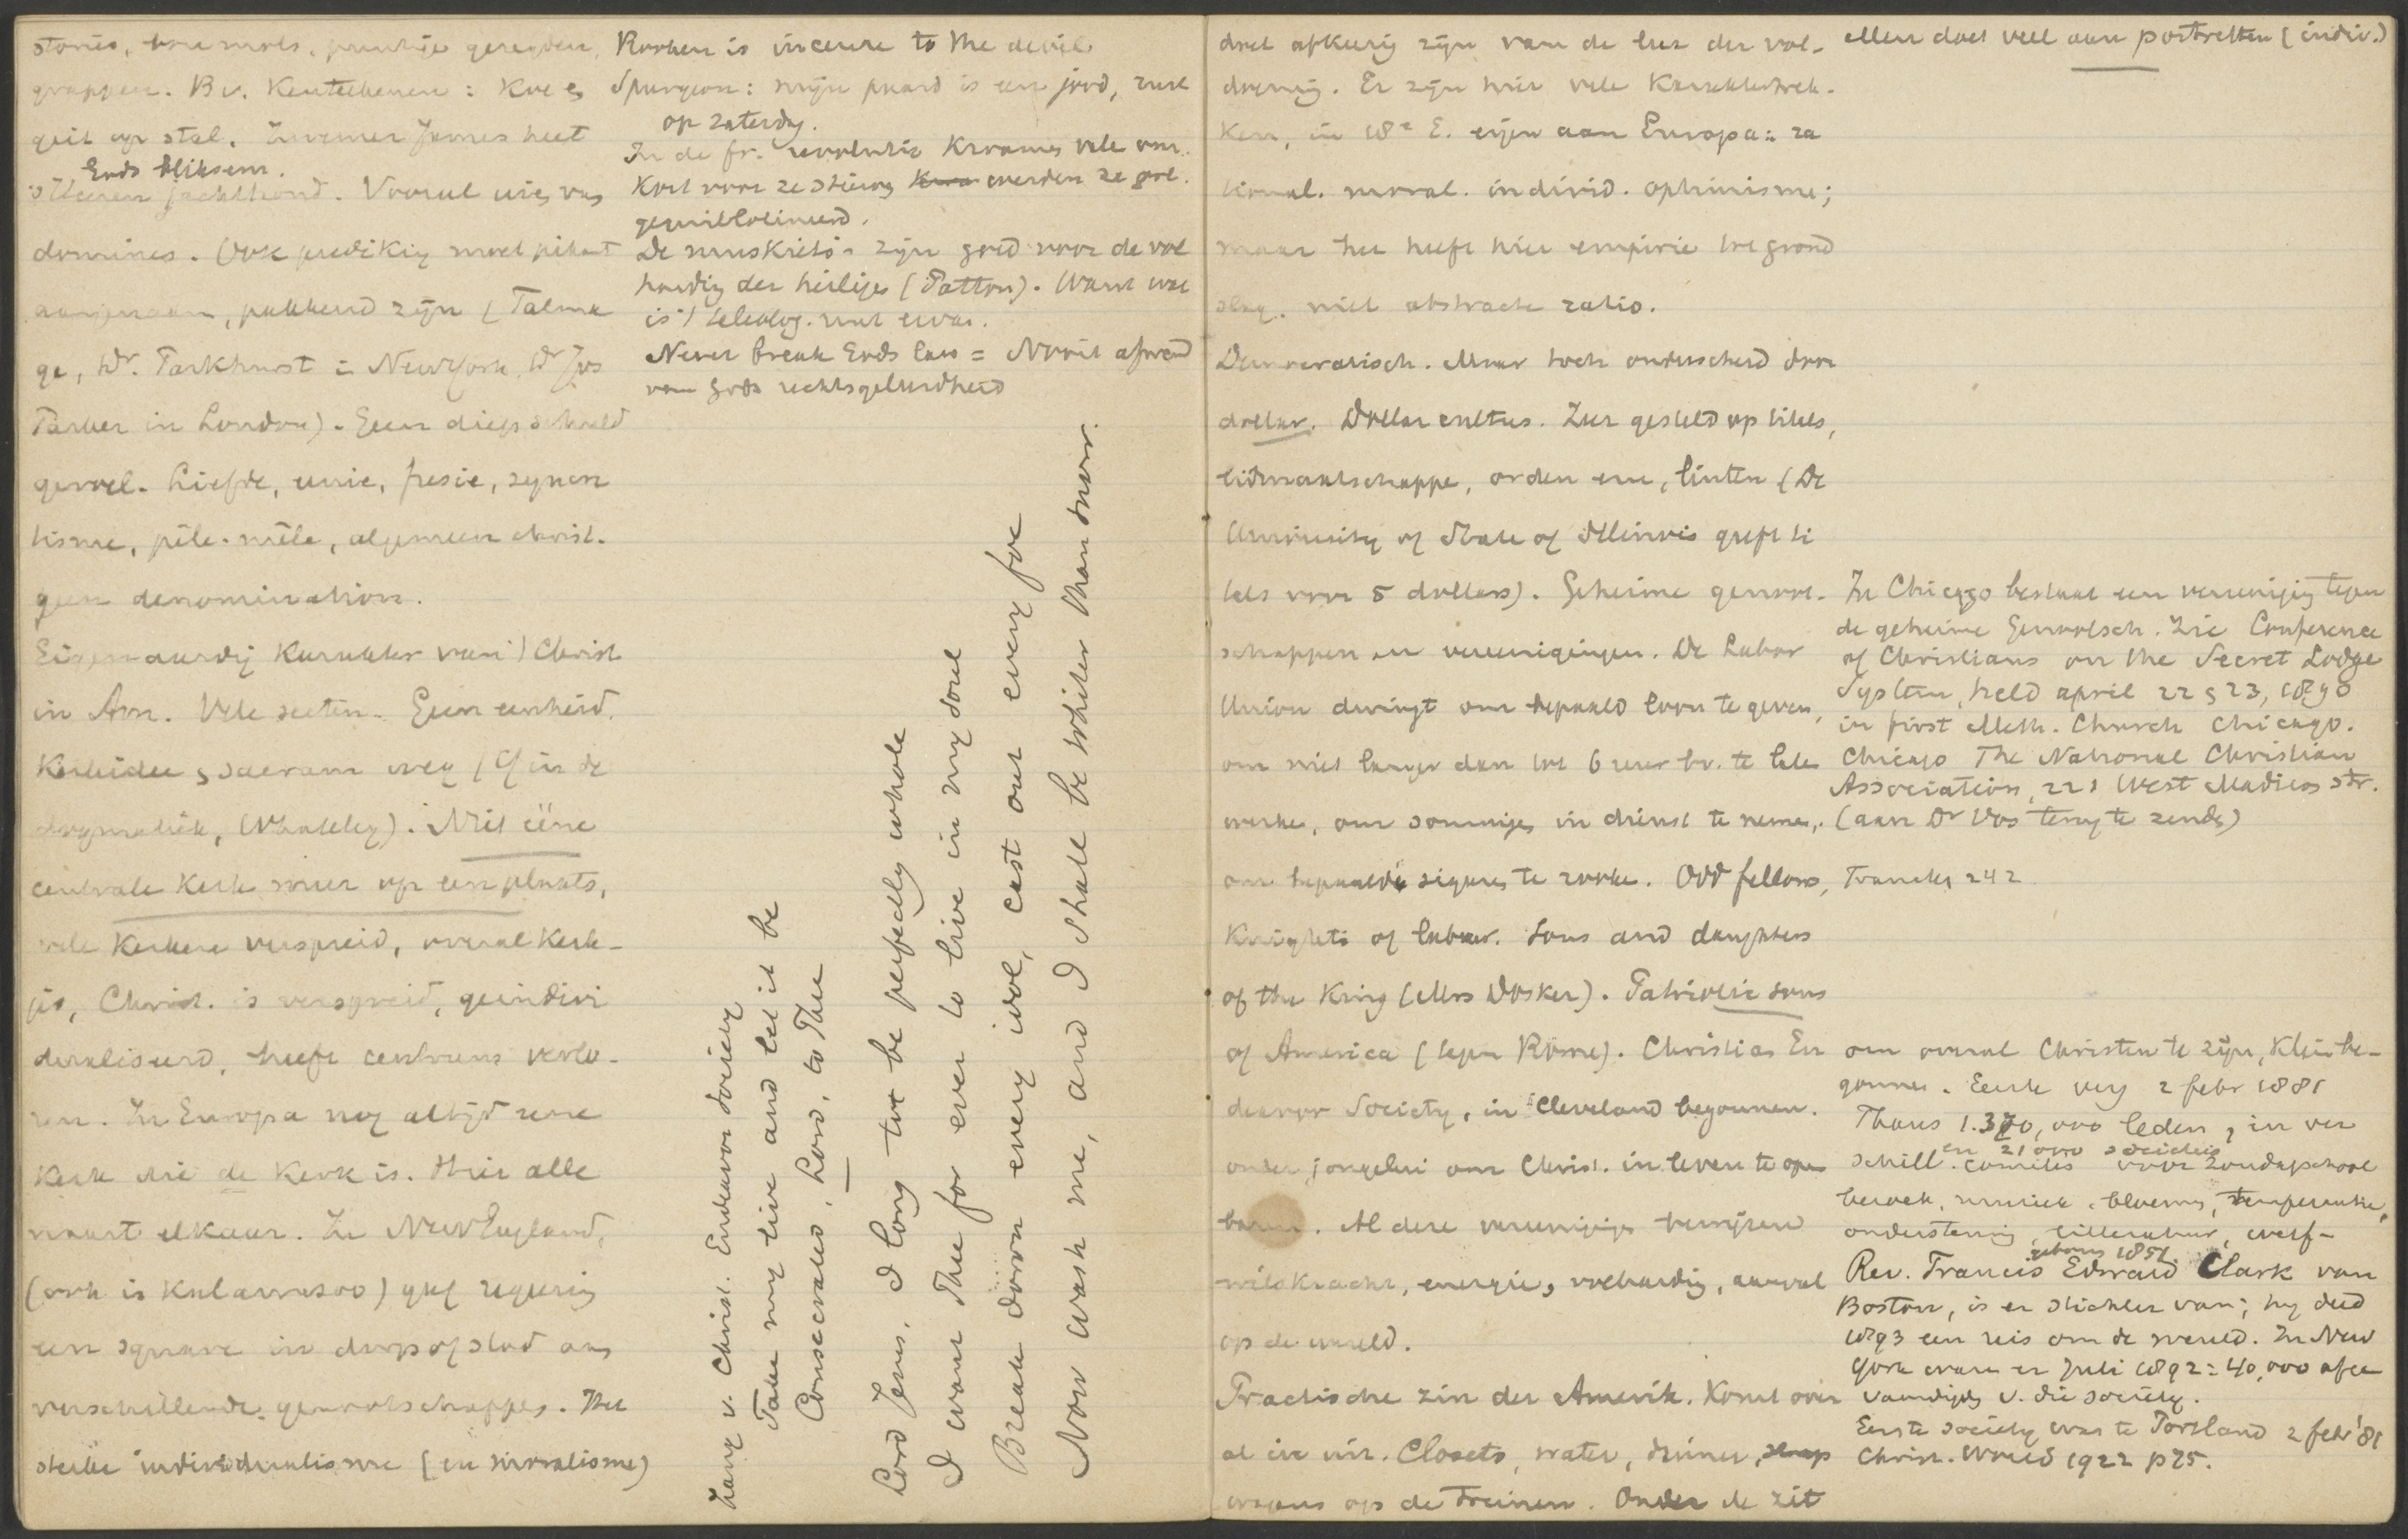 stories, bon mots, puntige gezegden,
grappen. Bv. Kentekenen: Koe &
geit op stal. Zwemer James heet
Gods bliksem.
jachthond. Vooral uit, van
dominees. Ook prediking moet pikant
aangenaam, pakkend zijn (Talma
ge, Dr. Parkhurst in New York, Dr Jos
Parker in London). Geen diep schuld
gevoel. Liefde, unie, fusie, syncre
tisme, pêle-mêle, algemeen christ.
geen denomination.
Eigenaardig karakter van 't Christ
in Am. Vele secten. Geen eenheid.
Kerkidee & sacram weg (Cf in de
dogmatiek, Whateley). Niet ééne
centrale Kerk meer op een plaats,
vele Kerken verspreid, overal kerk-
jes, Christ. is verspreid, geindivi
dualiseerd, heeft centrum verlo-
ren. In Europa nog altijd eene
Kerk die de Kerk is. Hier alle
naast elkaar. In New England,
(ook in Kalamazoo) gaf regering
een square in dorp of stad aan
verschillende genootschappen. Het
sterke individualisme (en moralisme)
Rooken is incense to the devil
Spurgeon: mijn paard is een jood, rust
op Zaterdag.
In de fr. revolutie kwamen vele om.
Kort voor ze stierven werden ze geel.
geguillotineerd.
De muskieto's zijn goed voor de vol
harding der heiligen (Patton). Want wat
is 't teleolog. nut ervan.
Never break Gods law = Nooit afwend
van Gods rechtsgeleerdheid
Zang v. Christ. Endeavor Society
Take my live and let it be
Consecrated, Lord, to Thee
Lord Jesus, I long to be perfectly whole
I want Thee for ever to live in my soul
Break down every idol, cast out every foe
Now wash me, and I shall be whiter than snow.
doet afkeerig zijn van de leer der vol-
drong. Er zijn hier vele Karaktertrek-
ken, in 18e E. eigen aan Europa: ra
tional. moral. individ. optimisme;
maar het heeft hier empirie tot grond
slag. niet abstracte ratio.
Democratisch. Maar toch onderscheid door
dollar. Dollar cultus. Zeer gesteld op titels,
lidmaatschappen, orden en, linten (De
University of State of Illinois geeft ti
tels voor 5 dollars). Geheime genoot-
schappen en vereenigingen. De Labor
Union dwingt om bepaald loon te geven,
om niet langer dan tot 6 uur bv. te laten
werken, om sommigen in dienst te nemen,
om bepaalde sigaren te rooken. Odd fellows,
Knights of labour. Sons and daughters
of the King (Mrs Dosker). Patriotic sons
of America (tegen Rome). Christian En
deavor Society, in Cleveland begonnen.
onder jongelui om Christ. in leven te open
baren. Al deze vereenigingen bewijzen
wilskracht, energie, volharding, aanval
op de wereld.
Practische zin der Amerik. Komt over
al in uit. Closets, water, diner, slaap
wagens op de treinen. Onder de zit
Men doet veel aan portretten (indiv.)
In Chicago bestaat een vereeniging tegen
de geheime Genootsch. Zie Conference
of Christians on the Secret Lodge
System, held april 22 & 23, 1890
in first Meth. Church Chicago.
Chicago The National Christian
Association, 221 West Madison str.
(aan Dr Vos terug te zenden)
Francken 242
om overal Christen te zijn, Klein be-
gonnen. Eerste verg 2 febr 1881
Thans 1.370,000 leden, in ver
en 21000 societies
schill. comités voor Zondagschool
bezoek, muziek, bloemen, temperantie,
ondersteuning, litteratuur,
geboren 1851.
Rev. Francis Edward Clark van
Boston, is er stichter van; hij deed
1893 een reis om de wereld. In New
York waren er Juli 1892: 40,000 afge
vaardigden v. die society.
Eerste society was te Portland 2 febr '81
Christ. World 1922 p 75.